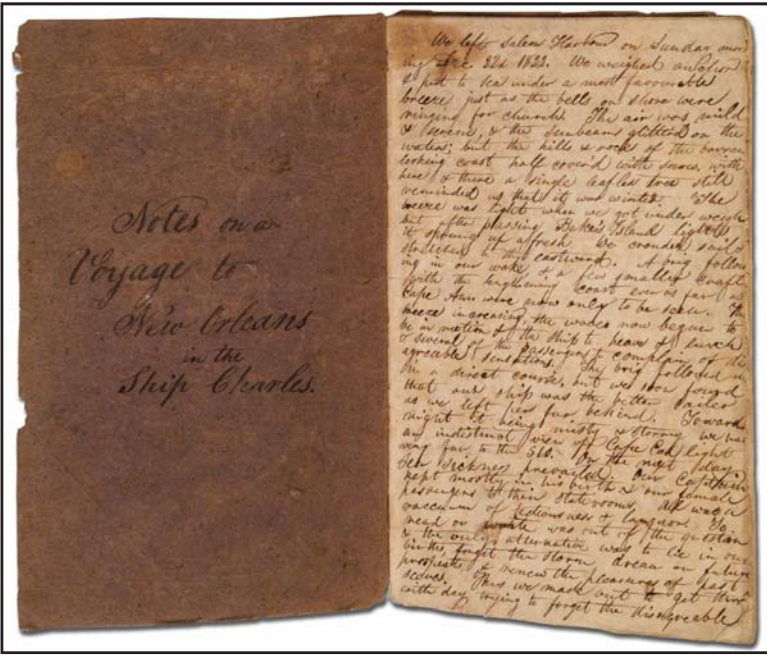 Notes on a
Voyage to
New Orleans
in the
Ship Charles.
We left Salem Harbour on Sunday morn
ing Dec. 22d 1822. We weighed anchor
& put to sea under a most favourable
breeze just as the bells on shore were
ringing for church. The air was mild
& serene, & the sunbeams glittered on the
waters; but the hills & rocks of the barren
looking coast half cover'd with snow, with
here & there a single leafless tree still
reminded us that it was winter. The
breeze was light when we got under weigh
but after passing Baker's Island lights
it sprung up afresh. We crowded sail &
stretched to the eastward. A brig follow
ing in our wake & a few smaller craft
with the lengthening coast even as far as
Cape Ann were now only to be seen. The
breeze increasing, the waves now began to
be in motion & the ship to heave & lurch
& several of the passengers to complain of dis
agreeable sensations. The brig followed us
in a direct course, but we soon found
that our ship was the better sailer
as we left her far behind. Toward
night it being misty & stormy we had
an indistinct view of Cape Cod light
far to the On the next day
sea sickness prevailed. Our Captain
kept mostly in his birth & our female
passengers to their staterooms. All was a
vaccuum of tediousness & languor. To
read or write was out of the question
& the only alternative was to lie in our
births, forget the storm dream on future
prospects, & renew the pleasures of past
scenes. Thus we made out to get thro'
with day trying to forget the disagreeable